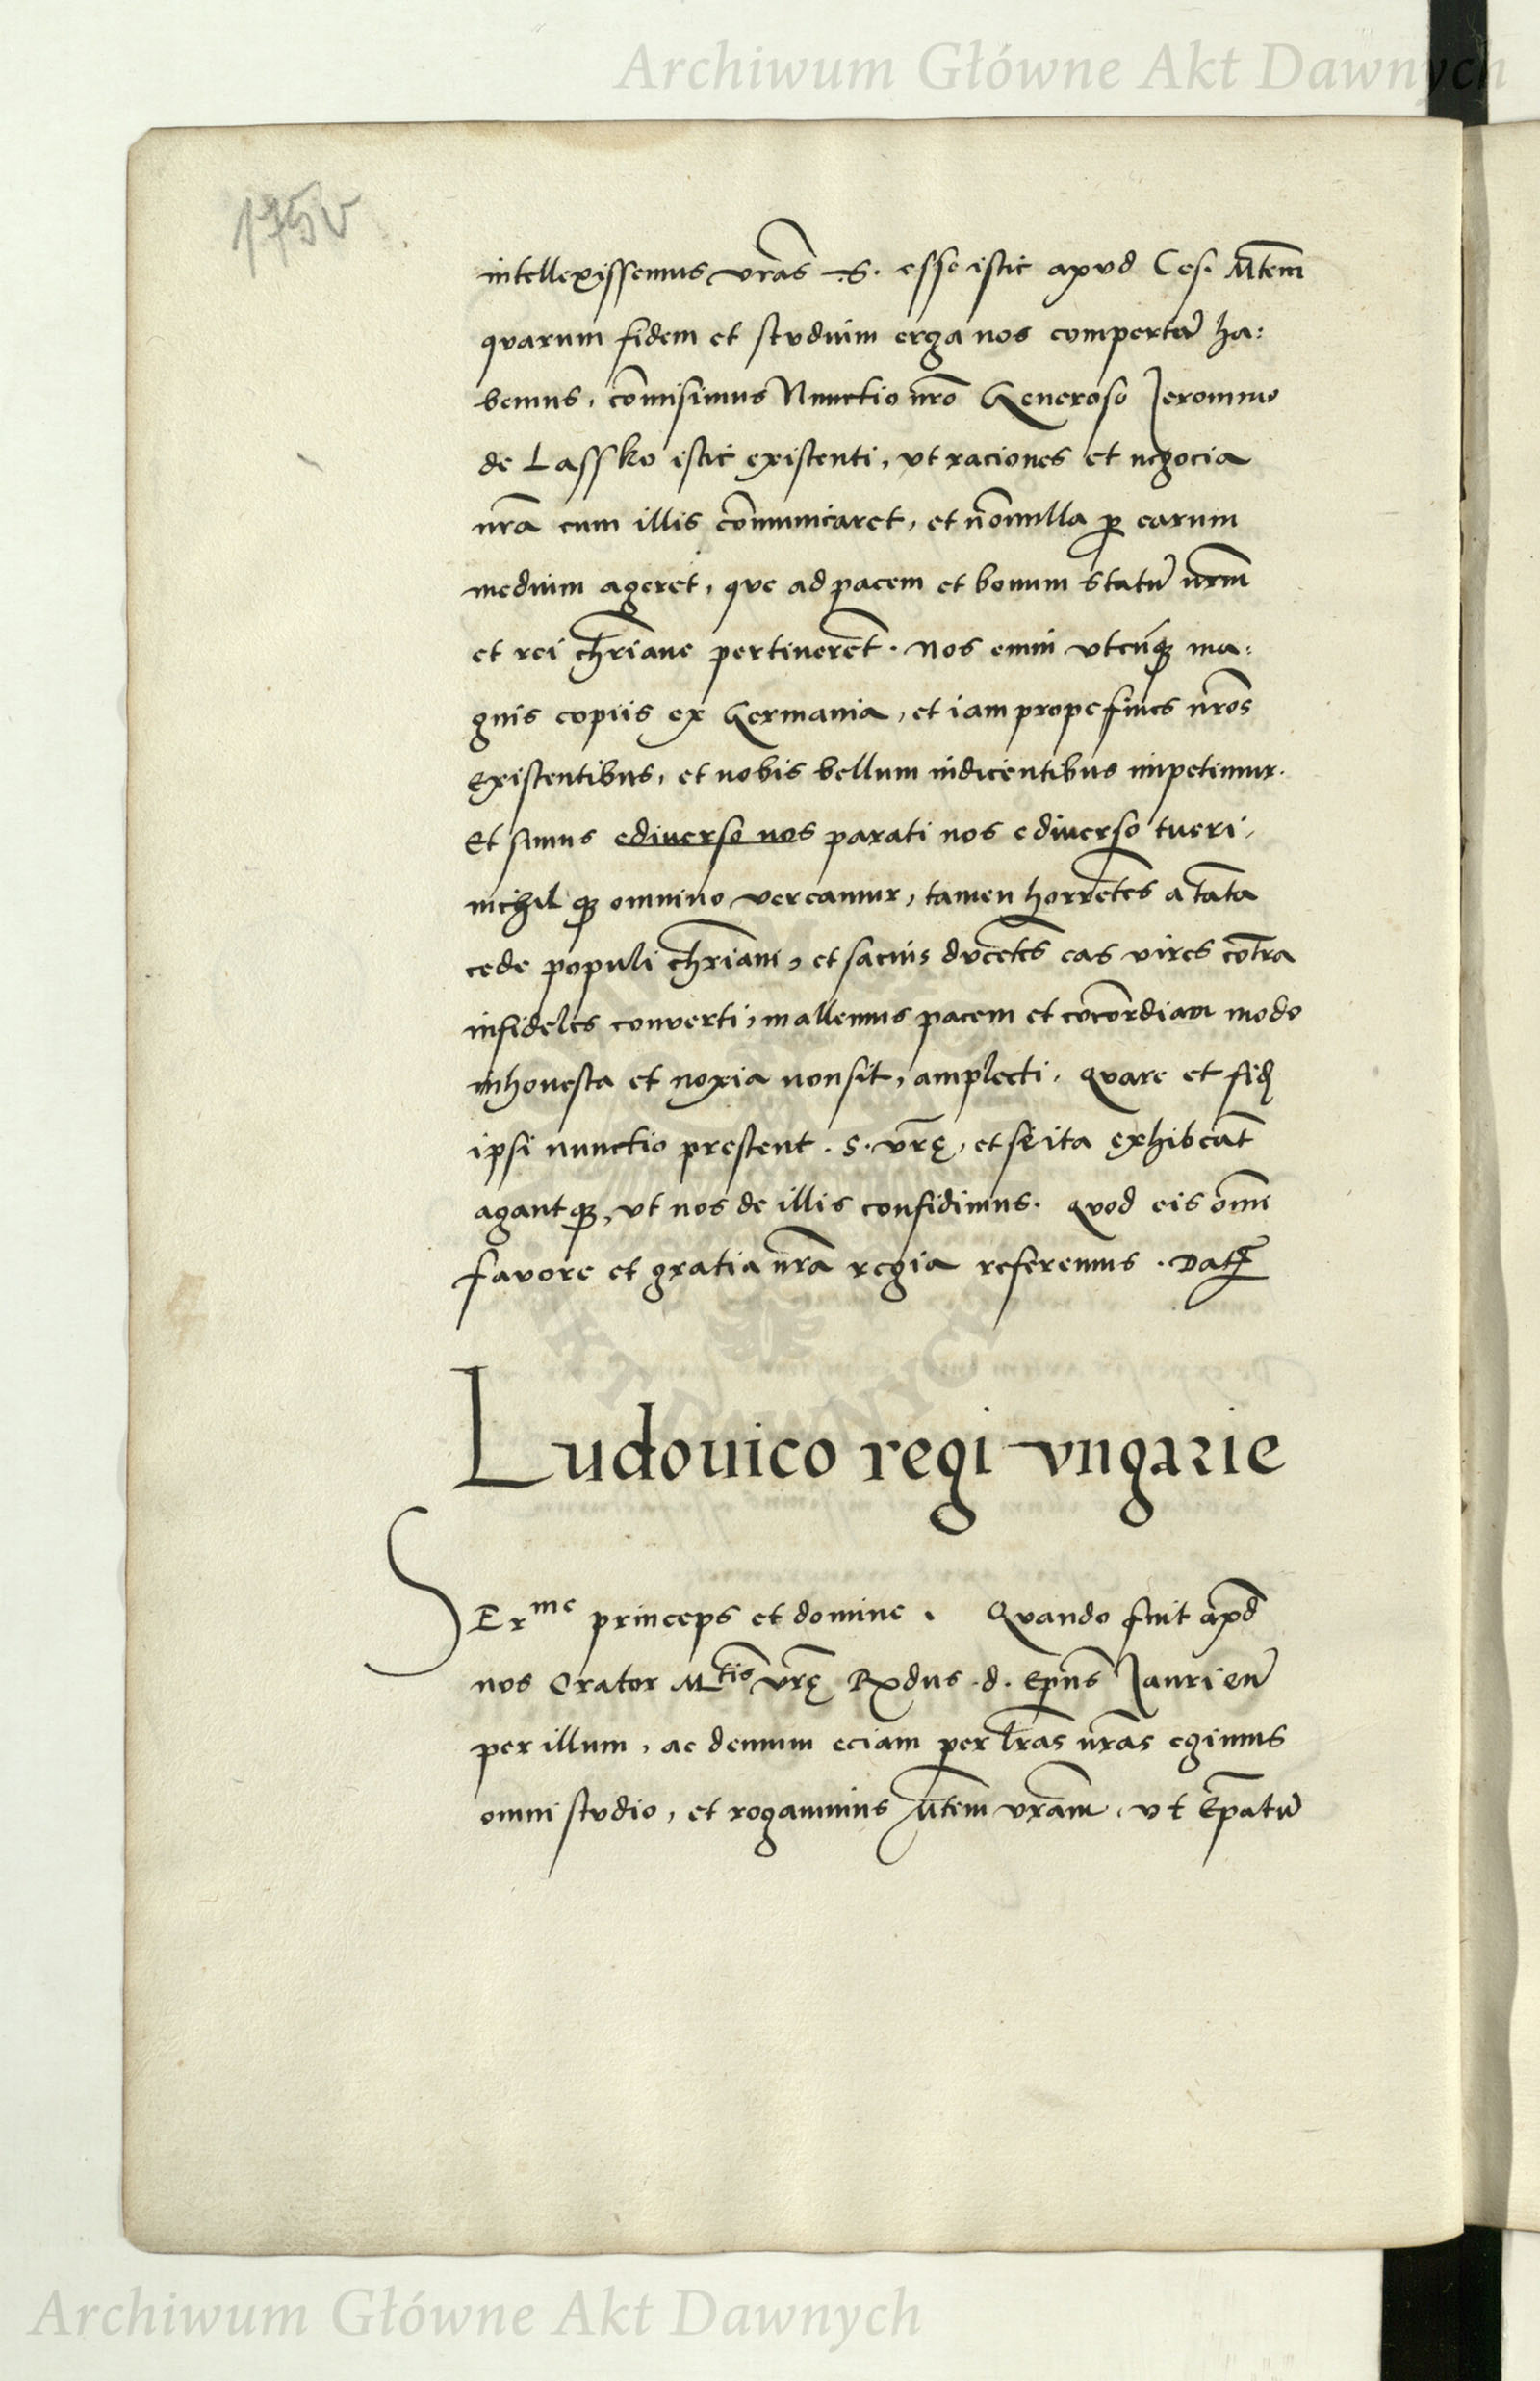 Archiwum Główne Akt Dawnych
175v
intellexissemus vr̃as .S. esse istic apvd Ces. Mtem̃
qvarum fidem et stvdium erga nos compertũ ha:
bemus, com̃isimus Nunctio nr̃o Generoso Jeronimo
de Lassko istic existenti, vt raciones et negocia
nr̃a cum illis com̃unicaret, et nõnulla ꝑ earum
medium ageret, qve ad pacem et bonum Statũ nrm̃
et rei chr̃iane pertinerẽt. Nos enim vtcũqꝫ ma:
gnis copiis ex Germania, et iam prope fines nr̃os
existentibus, et nobis bellum indicentibus impetimur.
Et simus ediuerso nos parati nos ediuerso tveri,
nichil qꝫ omnino vereamur, tamen horrẽtes a tãta
cede populi chr̃iani, et sacius dvcẽtes eas vires cõtra
infideles converti, mallemus pacem et cõcordiam modo
inhonesta et noxia non sit, amplecti. Qvare et fidẽ
ipsi nunctio prestent .S. vr̃ę, et se ita exhibeãt
agantqꝫ, vt nos de illis confidimus. Qvod eis om̃i
favore et gratia nr̃a regia referemus. Datꝭ
Ludouico regi vngarie
SEr^me princeps et domine. Qvando fuit apd̃
nos Orator M^tis vr̃ę Rx̃dus .d. Ep̃us Jaurieñ
per illum, ac demum eciam per lr̃as nr̃as egimus
omni stvdio, et rogauimus Mtem̃ vram̃, vt Ep̃atũ
Archiwum Główne Akt Dawnych